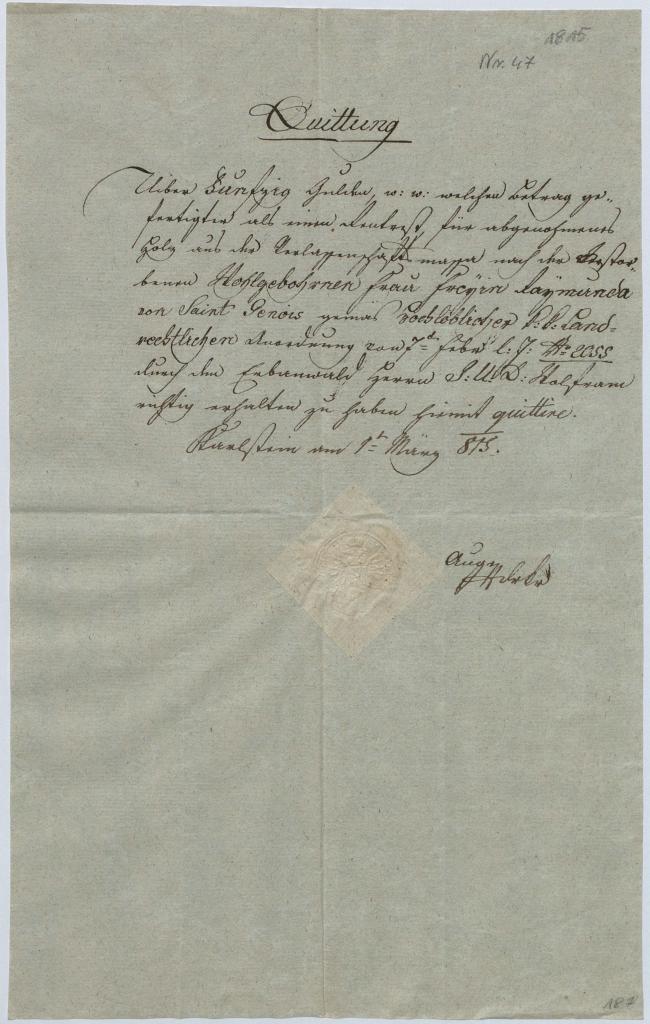 1815
Nr. 47
Quittung
Uiber Funfzig Gulden, w: w: welchen Betrag ge„
fertigter als einen Rentrest, für abgenohmenes
Holz aus der Verlassenschafts massa nach der verstor„
benen Wohlgebohrnen Frau Freÿin Raÿmunda
von Saint Genois gemäs hochlöblicher k: k: Land„
rechtlichen Anordnung von 7t Febr l: J: No 2055
durch den Erbanwald Herrn J: U: D: Wolfram
richtig erhalten zu haben hiemit quittire.
Karlstein am 1t März 815.
Aug
187